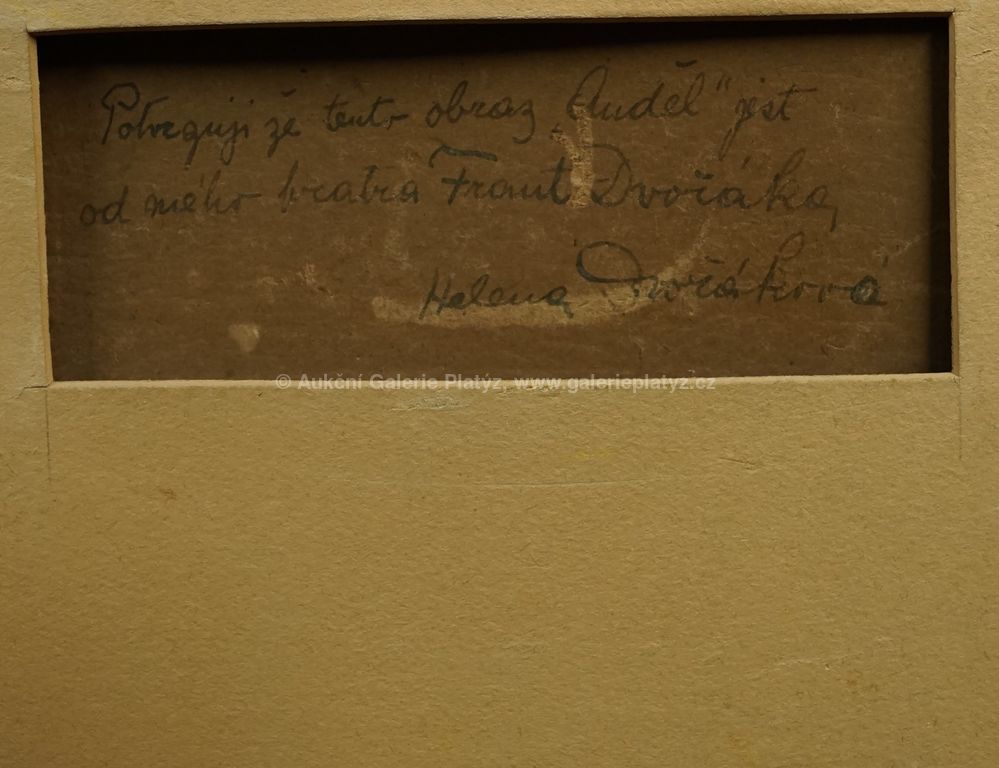 Potvrzuji že tento obraz „Anděl" jest
od mého bratra Frant Dvořáka,
Helena Dvořáková
© Aukční Galerie Platýz, www.galerieplatyz.cz